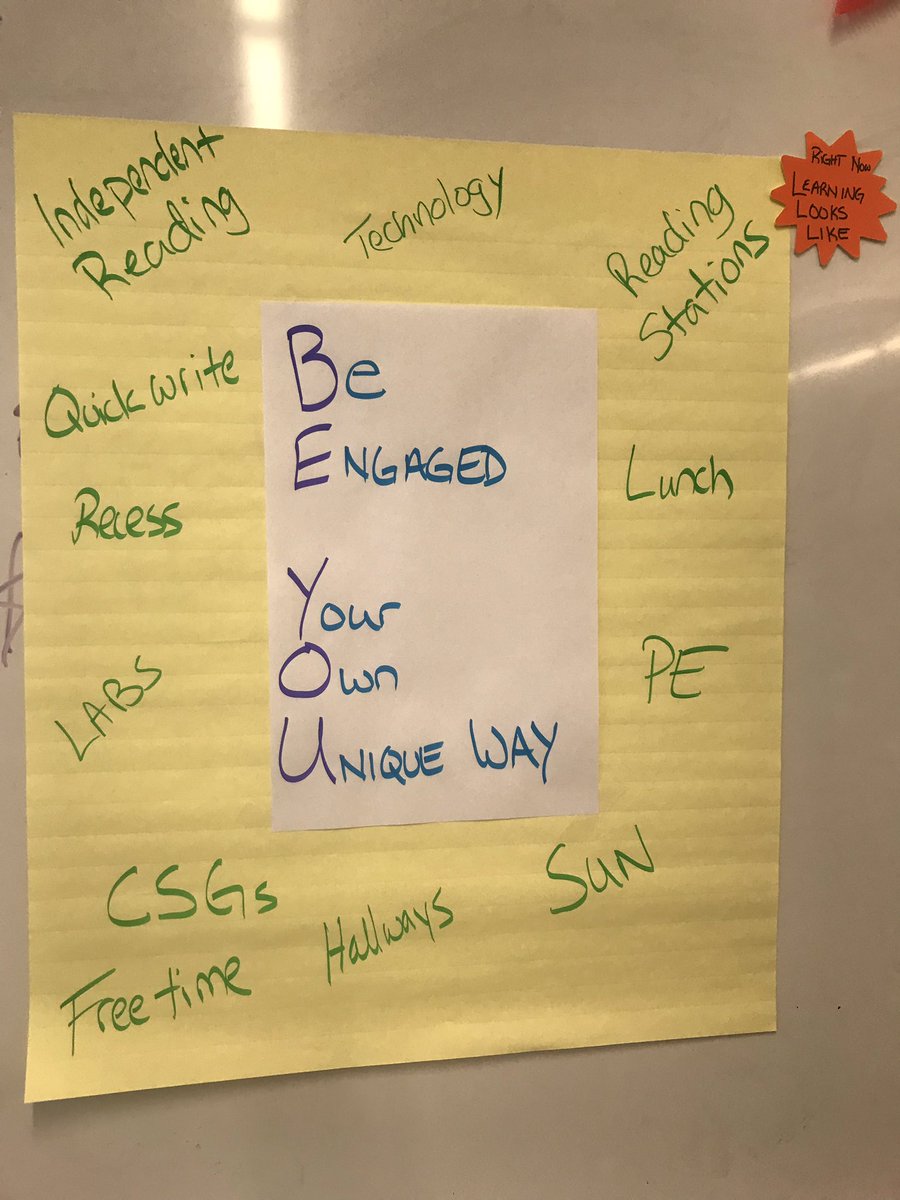 Independent
Reading
Technology
Reading
Stations
RIGHT NOW
LEARNING
LOOKS
LIKE
Quick write
Recess
LABS
Be
ENGAGED
Your
Own
UNIQUE WAY
Lunch
PE
CSGs
Free time
Hallways
SUN